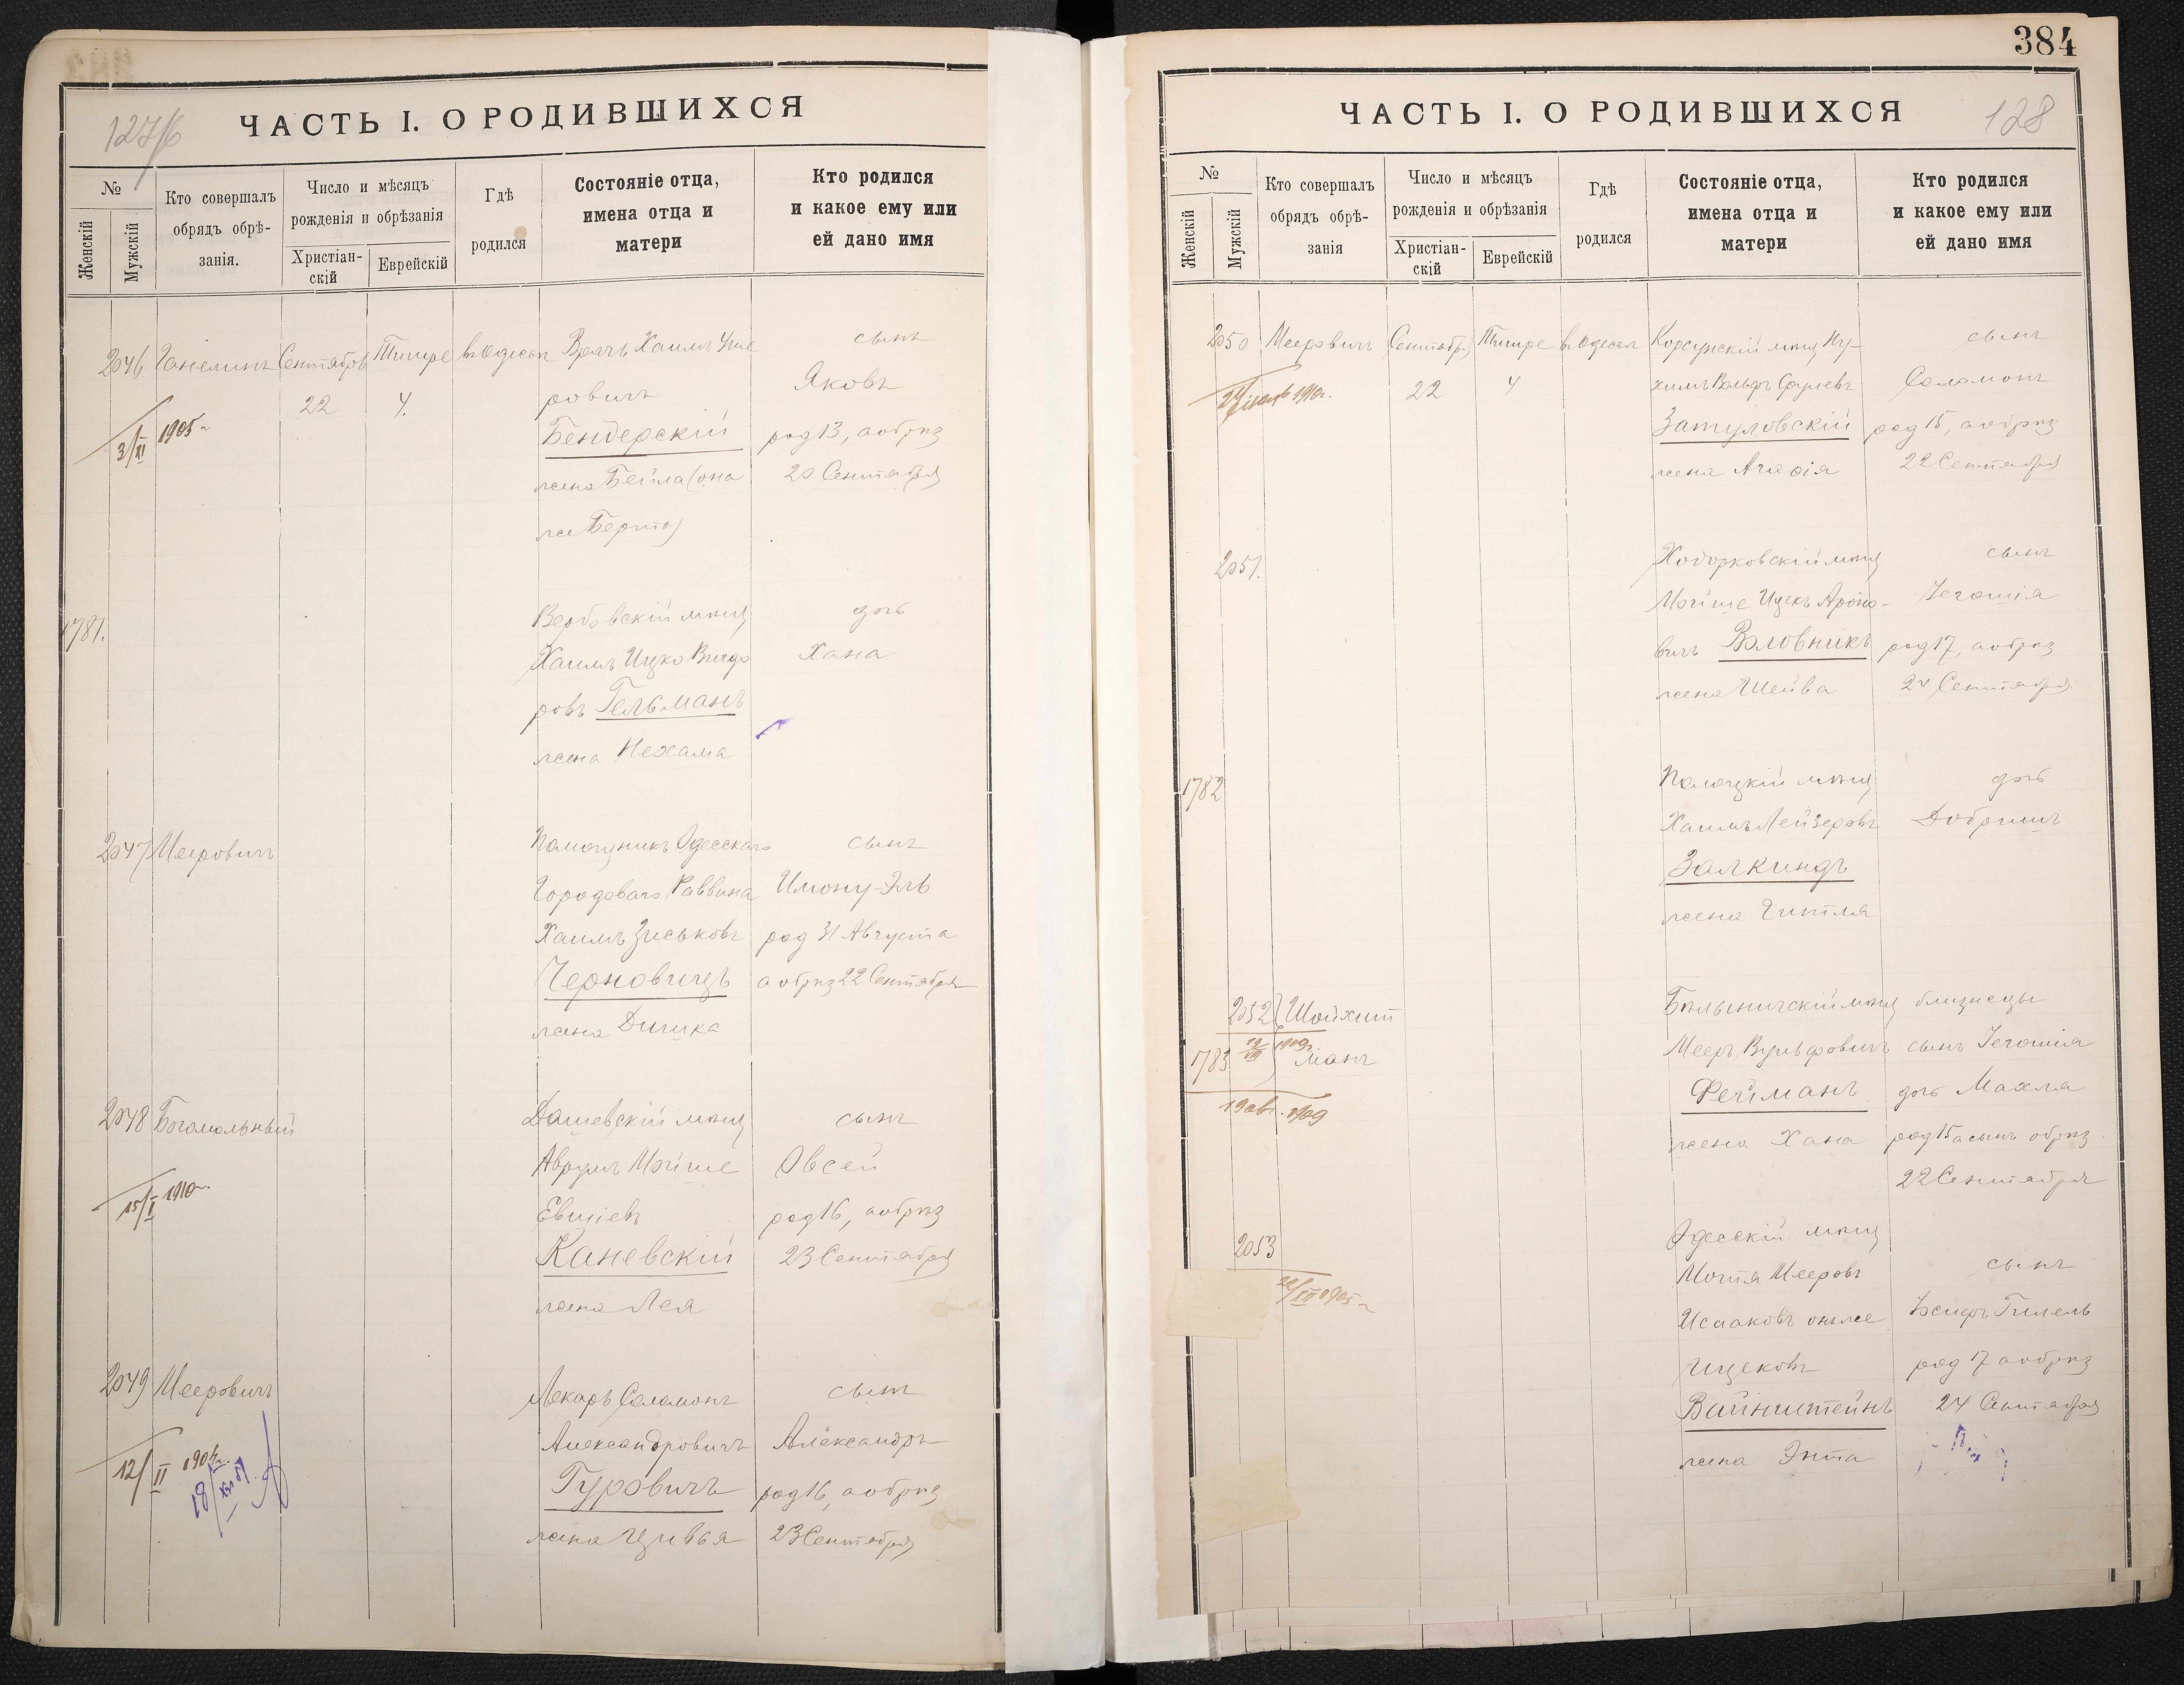 127/б
ЧАСТЬ I. О РОДИВШИХСЯ
№
Женскій
Мужскій
Кто совершалъ
обрядъ обрѣ-
занія.
Число и мѣсяцъ
рожденія и обрѣзанія
Христіан-
скій
Еврейскій
Гдѣ
родился
Состояніе отца,
имена отца и
матери
Кто родился
и какое ему или
ей дано имя
2046 Ганелинъ Сентябрь Тишре въ Одессѣ Врачъ Хаимъ сынъ
22 4. ровичъ Яковъ
3/XI 1905 Бендерскій род 13, а обрѣз
жена Бейла (она 20 Сентября
же Берта)
1781. Вербовскій мѣщ дочь
Хаимъ Ицко Вигдо Хана
ровъ Гельманъ
жена Нехама
2047 Мееровичъ Помощникъ Одесскаго сынъ
Городоваго Раввина Имону-Эль
Хаимъ Зиськовъ род 31 Августа
Черновицъ а обрѣз 22 Сентября
жена
2048 Богомольный Дашевскій мѣщ сынъ
Аврумъ Мойше Овсей
15/I 1910 Евшіевъ род 16, а обрѣз
Каневскій 23 Сентября
жена Лея
2049 Мееровичъ Лекарь Соломонъ сынъ
Александровичъ Александръ
12/II Гуровичъ род 16, а обрѣз
жена Цивья 23 Сентября
384
128
ЧАСТЬ I. О РОДИВШИХСЯ
№
Женскій
Мужскій
Кто совершалъ
обрядъ обрѣ-
занія
Число и мѣсяцъ
рожденія и обрѣзанія
Христіан-
скій
Еврейскій
Гдѣ
родился
Состояніе отца,
имена отца и
матери
Кто родился
и какое ему или
ей дано имя
2050 Мееровичъ Сентябрь Тишре въ Одессѣ Корсунскій мѣщ Ну- сынъ
1910г. 22 4 химъ Вольфъ Сруліевъ Соломонъ
Затуловскій род 15, а обрѣз
жена 22 Сентября
2051. Ходорковскій мѣщ сынъ
Мойше Ицекъ Ароно- Іегошія
вичъ Воловникъ род 17, а обрѣз
жена Шейва 24 Сентября
1782 Полоцкій мѣщ дочь
Хаимъ Лейзеровъ Добришъ
Залкиндъ
жена Гитля
2052 Шойхит мѣщ близнецы
1783 манъ Мееръ Вульфовичъ сынъ Іегошія
19 авг. 1909 Фейманъ дочь Махля
жена Хана род 15 а сынъ обрѣз.
22 Сентября
2053 Одесскій мѣщ
Мотя Мееровъ сынъ
Исааковъ онъ же Іосифъ Гилель
Ицековъ род 17 а обрѣз
Вайнштейнъ 24 Сентября
жена Энта